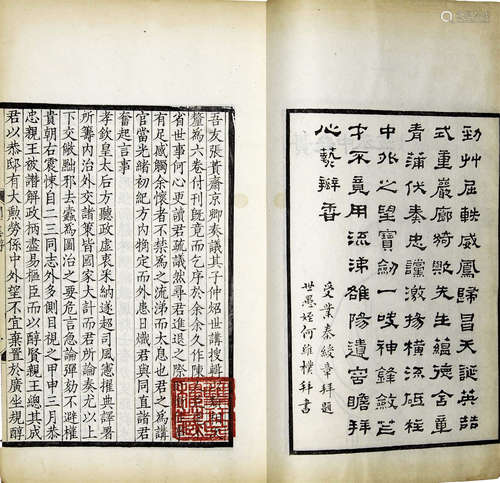 勁艸屈軼威鳳歸昌天誕英喆
式重巖廊猗歟先生蘊德含章
青蒲伏奏忠讜激揚橫流砥柱
中外之望寶劍一吷神鋒斂芒
才不竟用流涕雒陽遺容瞻拜
心藝瓣香
受業秦綬章拜題
世愚姪何維樸拜書
吾友張蕢齋京卿奏議其子仲炤世講搜輯
釐為六卷付刊既竟而乞序於余余久作陳
省世事何心更讀君疏議然尋君進退之際
有足感觸余懷者不禁流涕而太息也君之為講
官當光緒初紀方內觕定而外患日熾君與同直諸君
奮起言事
孝欽皇太后方聽政虛衷采納遂超司風擢典譯署
所籌內治外交諸策皆國家大計而君所論奏尤以上
下交儆黜邪去蠹為圖治之要危言急論彈劾不避權
貴朝右震悚自二三同志外多側目視之甲申三月恭
忠親王被譖解政柄盡易樞臣而以醇賢親王總其成
君以恭邸有大勳勞係中外望不宜棄置於廣坐規醇